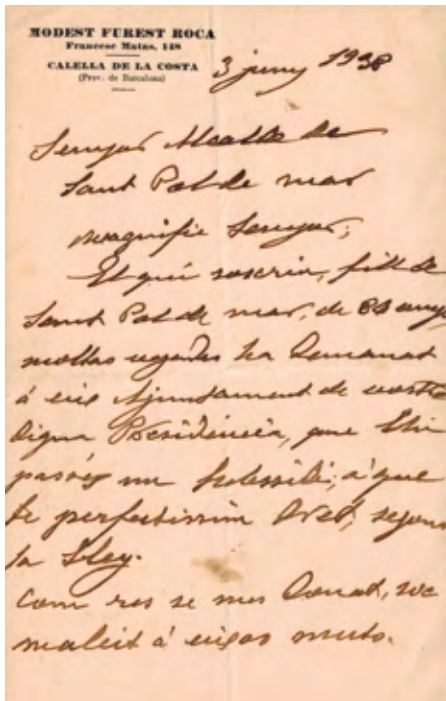 MODEST FUREST ROCA
Francesc Matas, 148
CALELLA DE LA COSTA
(Prov. de Barcelona)
3 juny 1938
Senyor Alcalde de
Sant Pol de mar
Magnific Senyor;
El qui suscriu, fill de
Sant Pol de mar, de 84 anys
moltas vegades ha demanat
á eix Ajuntament de vostra
digna Presidencia, que l'hi
passés un Subssidi, á que
te perfectissim Dret, segons
la Lley.
Com res se m'es Donat, soc
á eixas